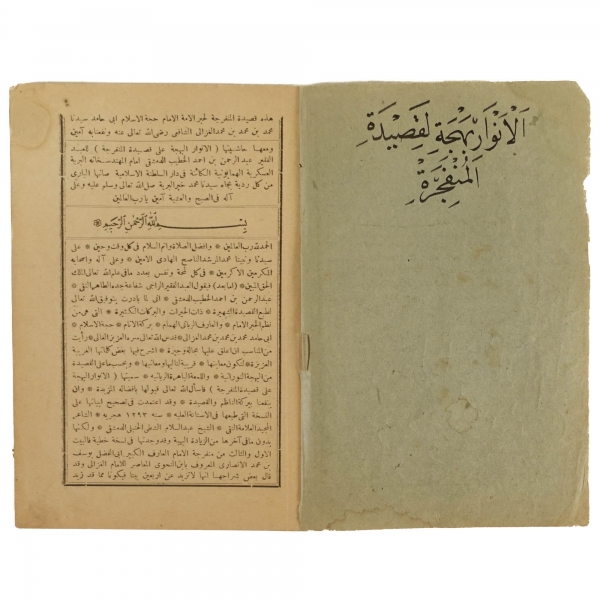 الأنوار بهجة لقصيدة
المنفجرة
هذه قصيدة المنفرجة لحبر الامة الامام حجة الاسلام ابى حامد سيدنا
محمد بن محمد بن محمد الغزالى الشافعى رضى الله تعالى عنه ونفعنا به آمين
ومعها حاشيتها ( الانوار البهجة على قصيدة المنفرجة ) للعبد
الفقير عبد الرحمن بن احمد الخطيب الدمشقى امام المهندسخانه البرية
العسكرية الهمايونية الكائنة فى دار السلطنة الاسلامية صانها البارى
من كل رزية بجاه سيدنا محمد خير البرية صلى الله تعالى وسلم عليه وعلى
آله فى الصبح والعشية آمين يارب العالمين
بسم الله الرحمن الرحيم
الحمد لله رب العالمين * وافضل الصلاة واتم السلام فى كل وقت وحين * على
سيدنا ونبينا محمد الرشد الناصح الهادى الامين * وعلى آله واصحابه
المكرمين الاكرمين * فى كل لمحة ونفس بعدد مافى علم الله تعالى الملك
الحق المبين * (امابعد) فيقول العبد الفقير الراجى شفاعة جده الطاهر النقى *
عبد الرحمن بن احمد الخطيب الدمشقى * انى لما بادرت بتوفيق الله تعالى
لطبع القصيدة الشهيرة * ذات الخيرات والبركات الكثيرة * التى هى من
نظم الحبر الامام * والعارف الربانى الهمام * بركة الانام * حجة الاسلام *
ابى حامد محمد بن محمد بن محمد الغزالى * قدس الله تعالى سره العزيز العالى * رأيت
من المناسب ان اعلق عليها عجالة وجيزة * اشرح فيها بعض كلماتها الغريبة
العزيزة * لتكون معانيها * قريبة لتاليها ومعانيها * وبحسب ماعلى القصيدة
من البهجة النورانية * واللمعة الباهرة الربانية * سميتها ( الانوار البهجة
على قصيدة المنفرجة ) فاسأل الله تعالى قبولها بافضاله المزيدة * وان
ينفعنا ببركة الناظم والقصيدة * وقد اعتمدت فى تصحيح ابياتها على
النسخة التى طبعها فى الاستانة العلية * سنه ١٢٩٣ هجريه * الشاعر
المجيد العلامة التقى * الشيخ عبد السلام الشطى الحنبلى الدمشقى * ولكنها
بدون مافى آخرها من الزيادة البهية وقد وجدتها فى نسخة خطية فالبيت
الاول والثالث من منفرجة الامام العارف الكبير ابى الفضل يوسف
بن محمد الانصارى المعروف بابن النحوى المعاصر للامام الغزالى وقد
قال بعض شراحها انها لاتزيد عن اربعين بيتا فيكونا مما قد زيد